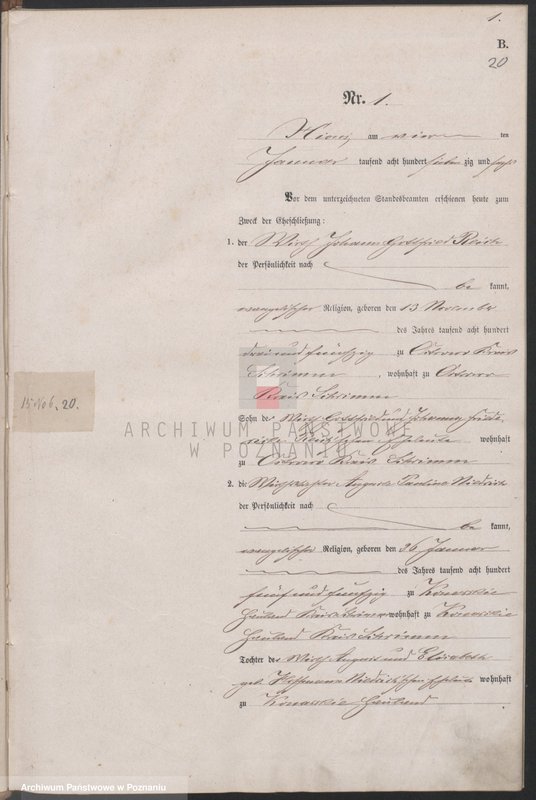 1.
B.
20
Nr. 1.
Xions, am vier ten
Januar tausend acht hundert sieben zig und sechs
Vor dem unterzeichneten Standesbeamten erschienen heute zum
Zweck der Eheschließung:
1. der Wirth Johann Gottfried
der Persönlichkeit nach
be kannt,
evangelischer Religion, geboren den 13 November
des Jahres tausend acht hundert
drei und fünfzig zu Kreis
Schrimm, wohnhaft zu
Kreis Schrimm
Sohn der Wirth Gottfried und Johanna
Eheleute wohnhaft
zu Kreis Schrimm
2. die Wirthstochter Auguste Pauline
der Persönlichkeit nach
be kannt,
evangelischer Religion, geboren den 26 Januar
des Jahres tausend acht hundert
fünf und fünfzig zu
Hauland Kreis Schrimm wohnhaft zu
Hauland Kreis Schrimm
Tochter der Wirth August und Elisabeth
geb. Eheleute wohnhaft
zu Hauland
20.
ARCHIWUM PAŃSTWOWE
W POZNANIU
Archiwum Państwowe w Poznaniu